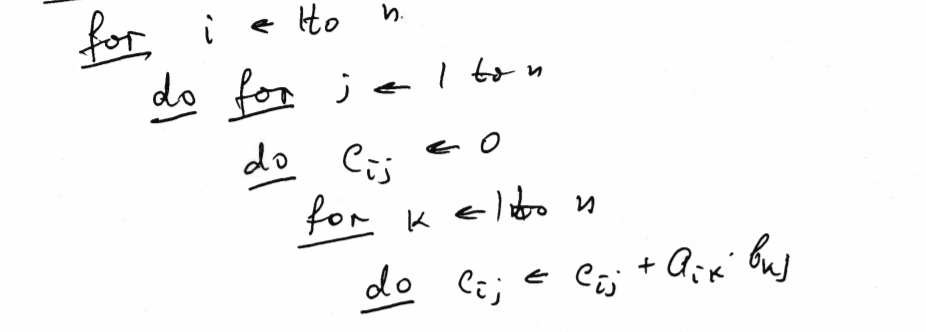 for i ← 1 to n.
do for j ← 1 to n
do cᵢⱼ ← 0
for k ← 1 to n
do cᵢⱼ ← cᵢⱼ + aᵢₖ · bₖⱼ